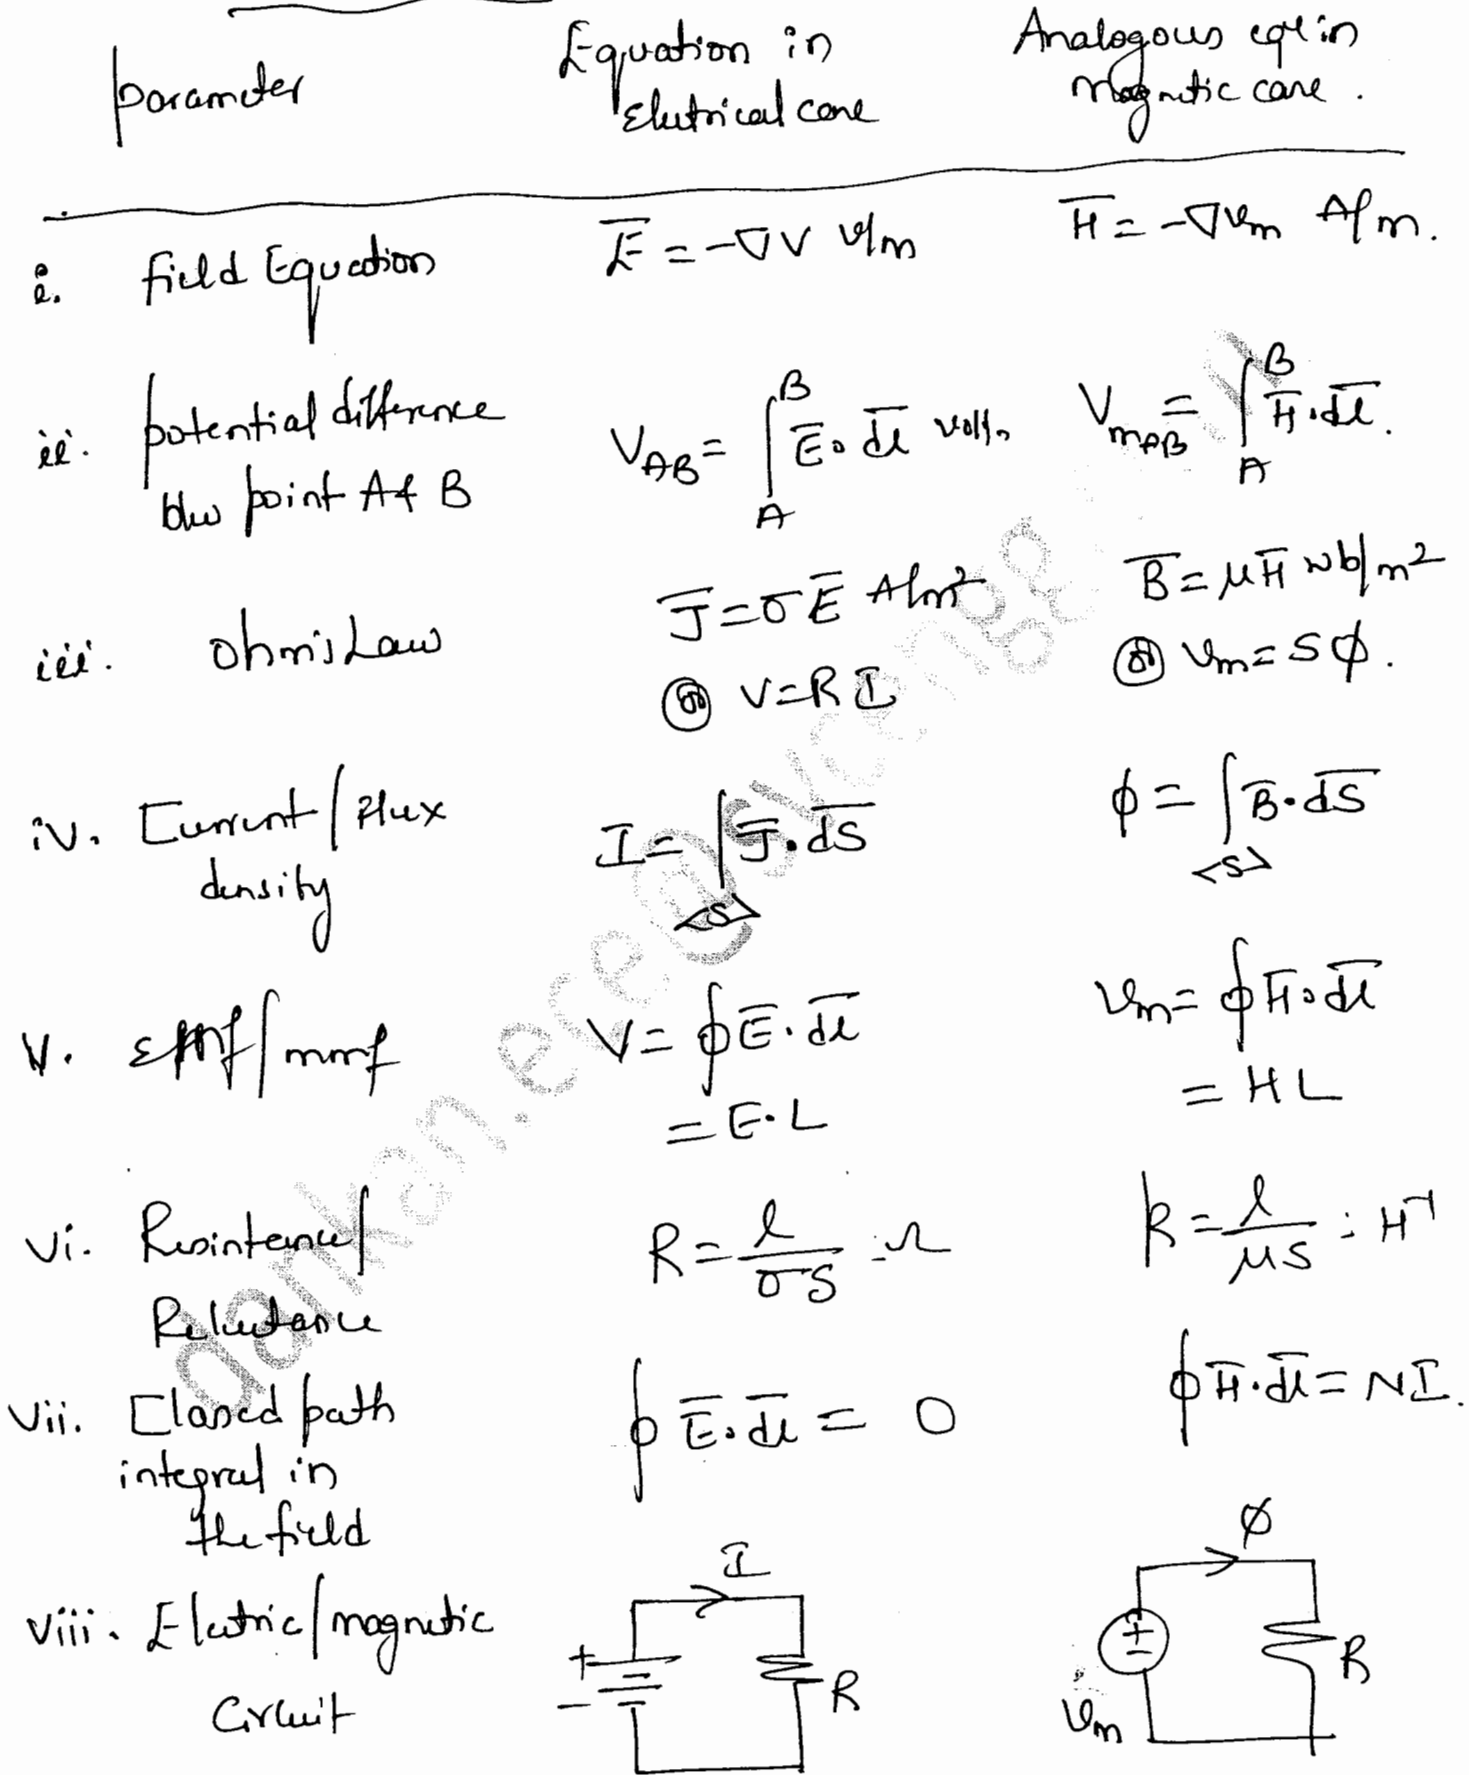 parameter Equation in Electrical case Analogous eqn in magnetic case.
i. Field Equation E̅ = -∇V V/m H̅ = -∇Vm A/m.
ii. potential difference b/w point A & B V_AB = ∫_A^B E̅ · dl̅ volts V_mAB = ∫_A^B H̅ · dl̅.
iii. Ohm's Law J̅ = σE̅ A/m² B̅ = μH̅ wb/m²
(or) V = RI (or) Vm = Sϕ.
iv. Current/Flux density I = ∫_<S> J̅ · dS̅ ϕ = ∫_<S> B̅ · dS̅
v. EMF/mmf V = ∮ E̅ · dl̅ Vm = ∮ H̅ · dl̅
= E·L = HL
vi. Resistance/ Reluctance R = l/σS : Ω R = l/μS : H⁻¹
vii. Closed path integral in the field ∮ E̅ · dl̅ = 0 ∮ H̅ · dl̅ = NI.
viii. Electric/magnetic Circuit
I ϕ
+ - R + - Vm R
dankan.ece@svcengg